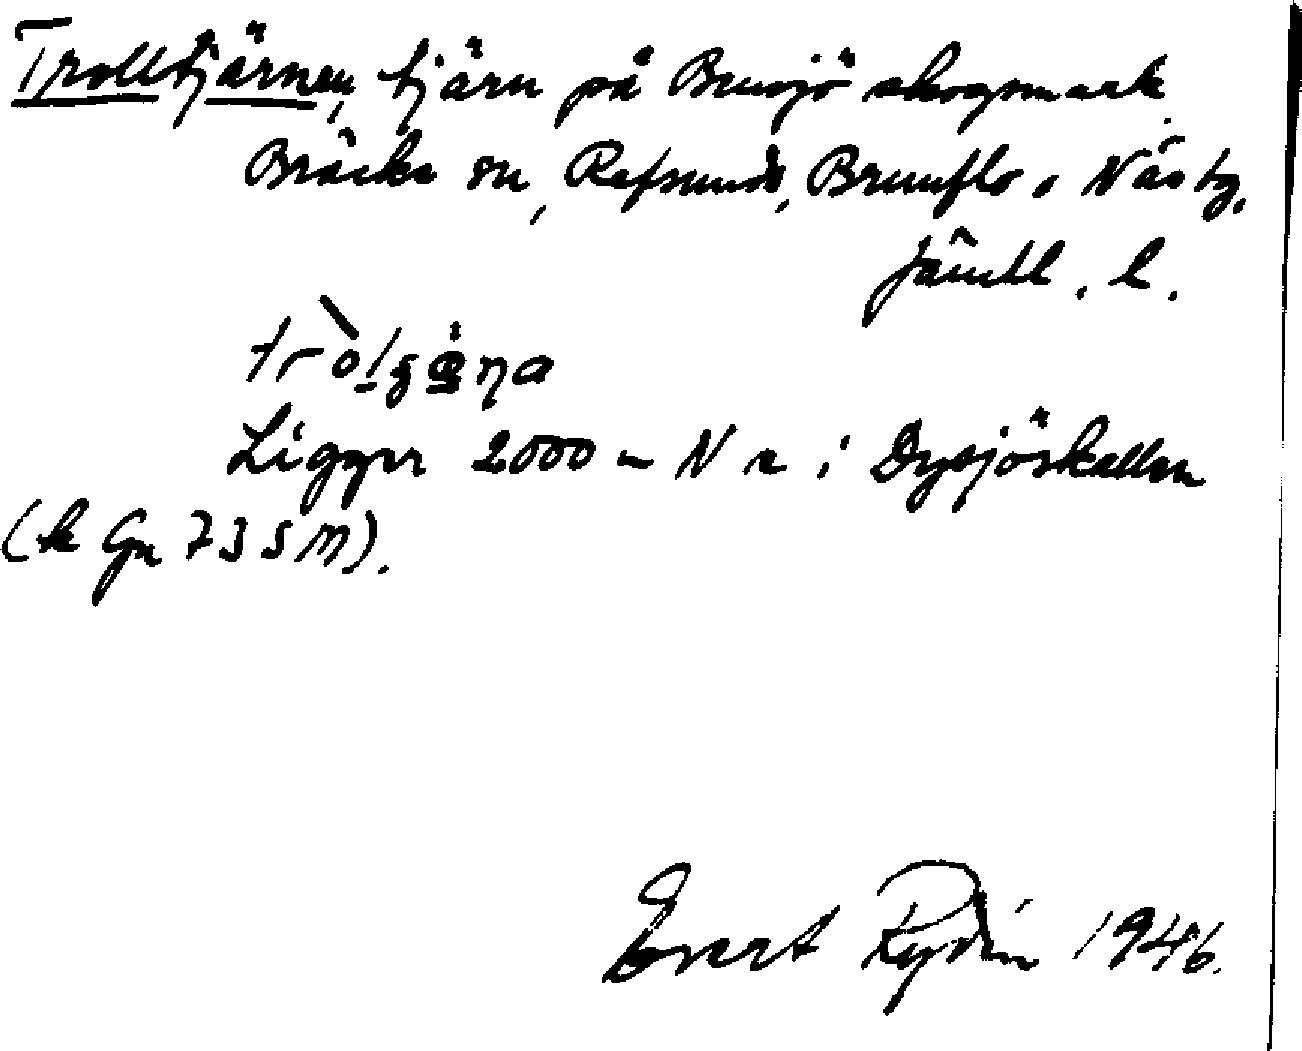 Trolltjärnen, tjärn på Bensjö skogsmark
Bräcke sn, Refsunds, Brunflo o Näs tg.
Jämtl. l.
Ligger 2000 m N r i Dysjöskallen
(k Gn 735 M).
Evert Rydin 1946.